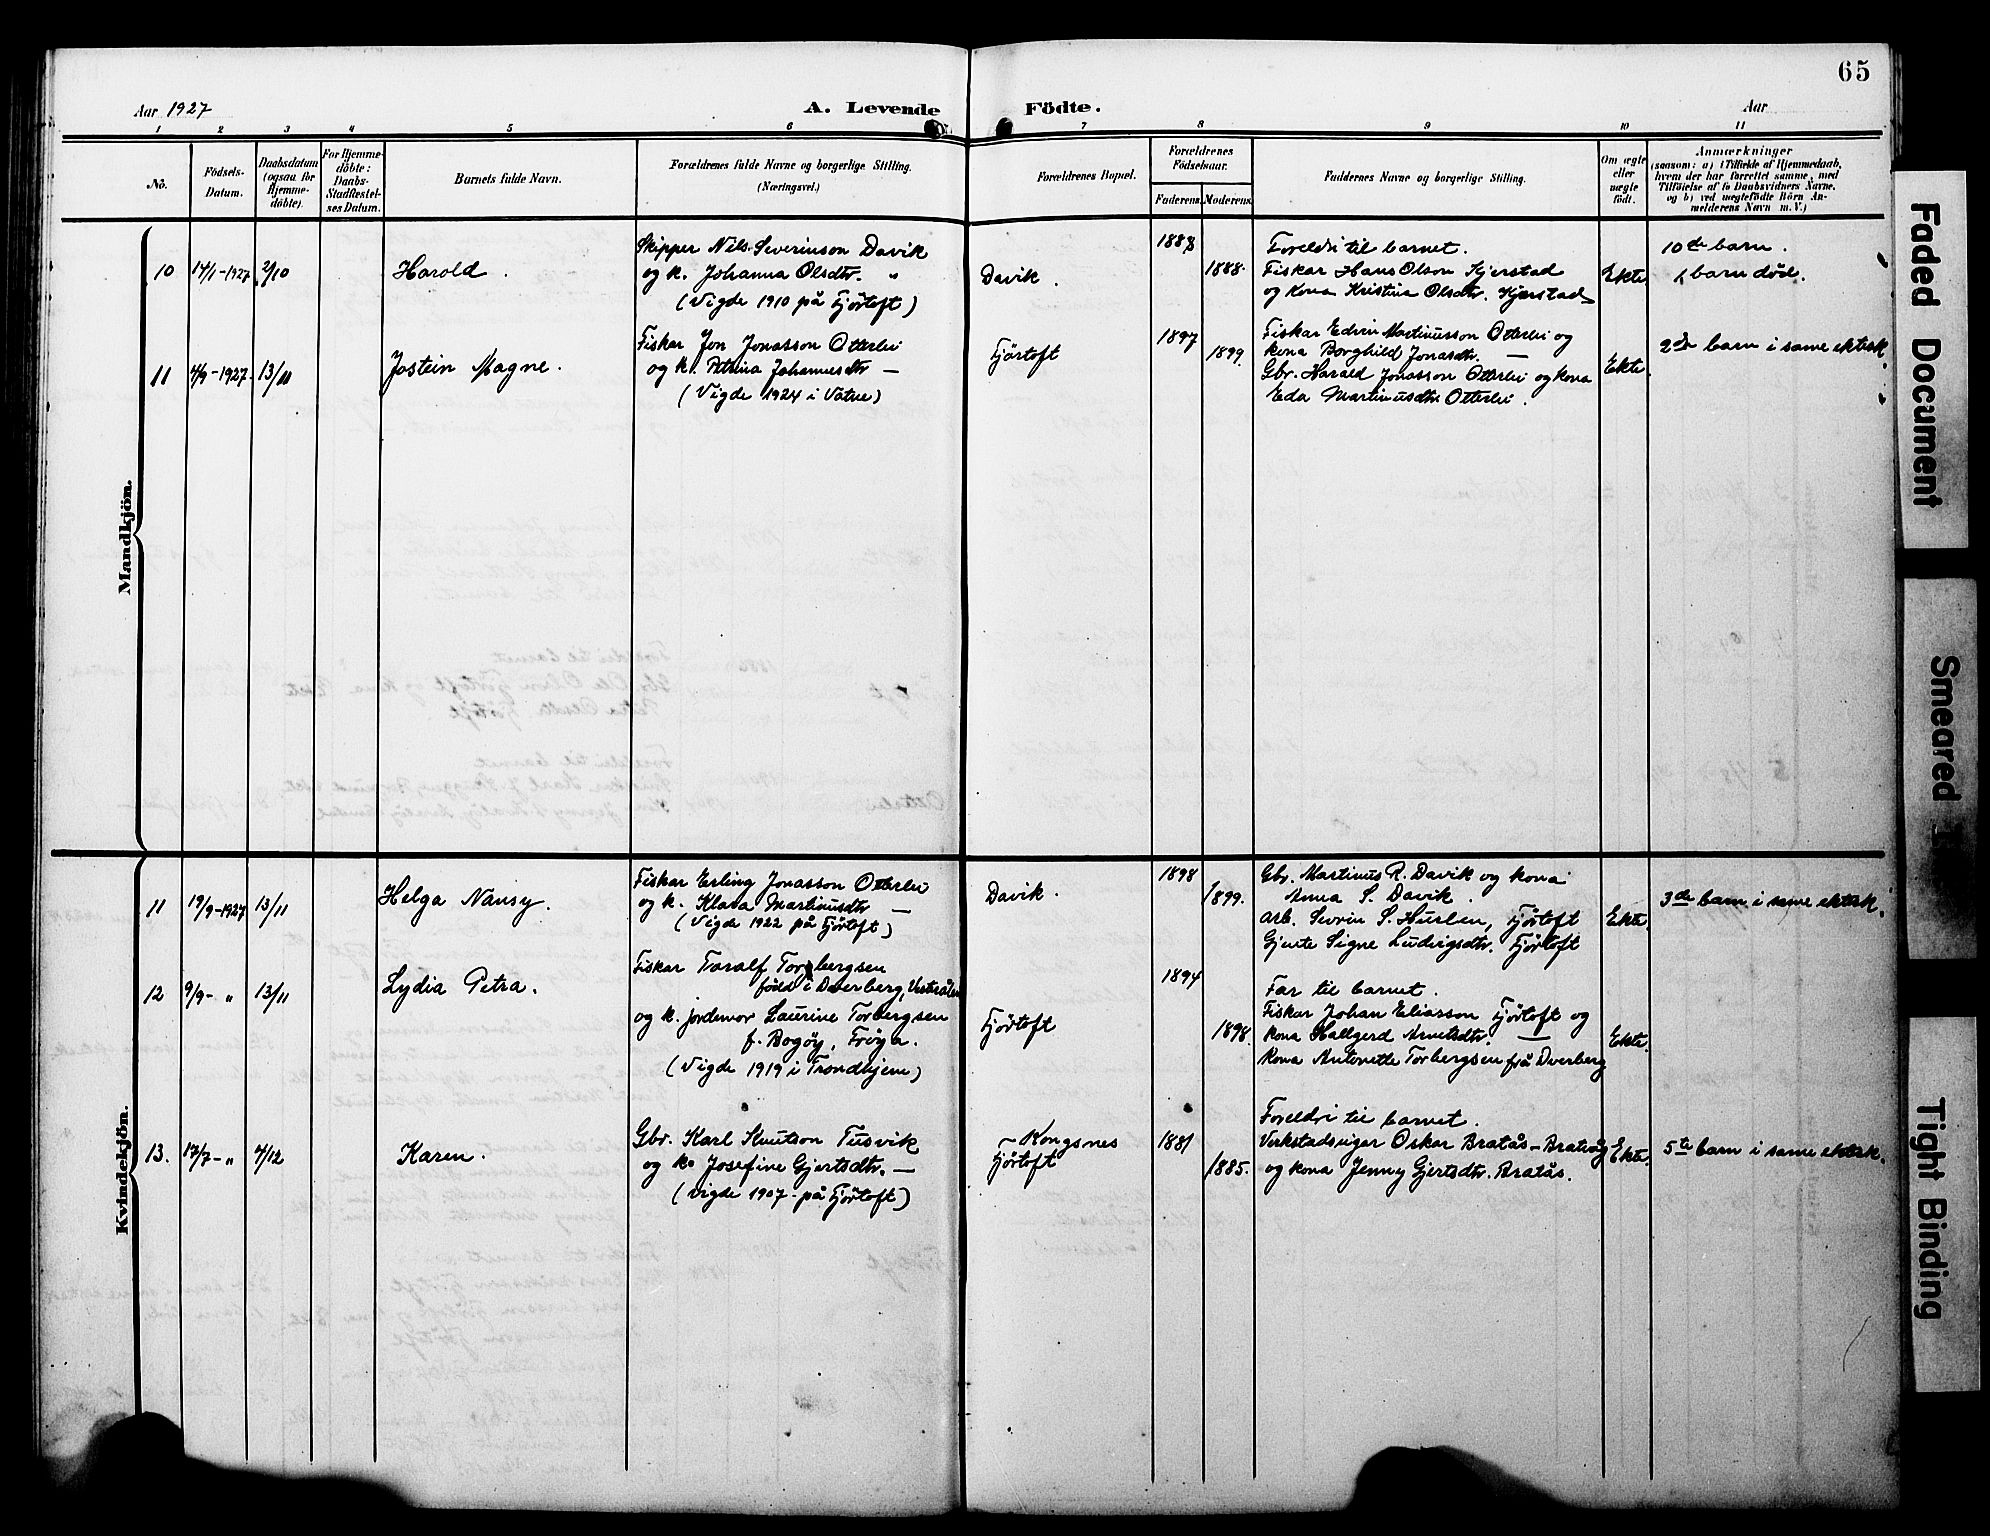 65
Aar 1927
A. Levende Födte.
Aar
1 2 3 4 5 6 7 8 9 10 11
No.
Födsels-
Datum.
Daabsdatum
(ogsaa for
Hjemme-
döbte).
For Hjemme-
döbte:
Daabs-
Stadfæstel-
ses Datum.
Barnets fulde Navn.
Forældrenes fulde Navne og borgerlige Stilling.
(Næringsvei.)
Forældrenes Bopæl.
Forældrenes
Födselsaar.
Faderens. Moderens.
Faddernes Navne og borgerlige Stilling.
Om ægte
eller
uægte
födt.
Anmærkninger
(saasom: a) i Tilfælde af Hjemmedaab,
hvem der har forrettet samme, med
Tilföielse af to Daabsvidners Navne,
og b) ved uægtefödte Börn An-
melderens Navn m. V.)
Mandkjön.
10 14/1-1927 2/10
Harold.
Skipper Nils Severinson Davik
og k. Johanna Olsdtr. "
(Vigde 1910 på Fjörtoft)
Davik.
1888.
Foreldri til barnet.
Fiskar Hans Olson Kjerstad
og kona Kristina Olsdtr. Kjerstad
Ekte
10de barn.
barn död.
11 4/9-1927. 13/11
Jostein Magne.
Fiskar Jon Jonasson Otterlei
og k. Petrina Johannesdtr —
(Vigde 1924 i Vatne)
Fjörtoft
1897
1899.
Fiskar Edvin Martinusson Otterlei og
kona Borghild Jonasdtr. —
Gbr. Harald Jonasson Otterlei og kona
Eda Martinusdtr. Otterlei.
Ekte.
2dre barn i same ektesk.
Kvindekjön.
11 19/9-1927 13/11
Helga Nansy.
Fiskar Erling Jonasson Otterlei
og k. Klara Martinusdtr —
(Vigde 1922 på Fjörtoft)
Davik.
1898
1899.
Gbr. Martinus R. Davik og kona
Anna S. Davik.
arb. Sevrin S. Huslen, Fjörtoft
Gjente Signe Ludvigsdtr. Fjörtoft
Ekte.
3de barn i same ektesk.
12 9/9- " 13/11
Lydia Petra.
Fiskar Toralf Torbergsen
född i Dverberg, Vesterålen
og k. jordmor Laurine Torbergsen
f. Bogöy, Fröya.
(Vigde 1919 i Trondhjem)
Fjörtoft
1894
1898.
Far til barnet.
Fiskar Johan Eliasson Fjörtoft og
kona Hallgerd Arnetsdtr. —
Kona Antonette Torbergsen frå Dverberg
Ekte.
13. 17/7- " 4/12
Karen.
Gbr. Karl Knutson Tusvik
og k. Josefine Gjertsdtr. —
(vigde 1907 - på Fjörtoft)
Kongsnes
Fjörtoft
1881
1885.
Foreldri til barnet.
Verkstadseigar Oskar Bratås - Brattvåg
og kona Jenny Gjertsdtr. Bratås.
Ekte.
5te barn i same ektesk.
Faded Document
Smeared
Tight Binding